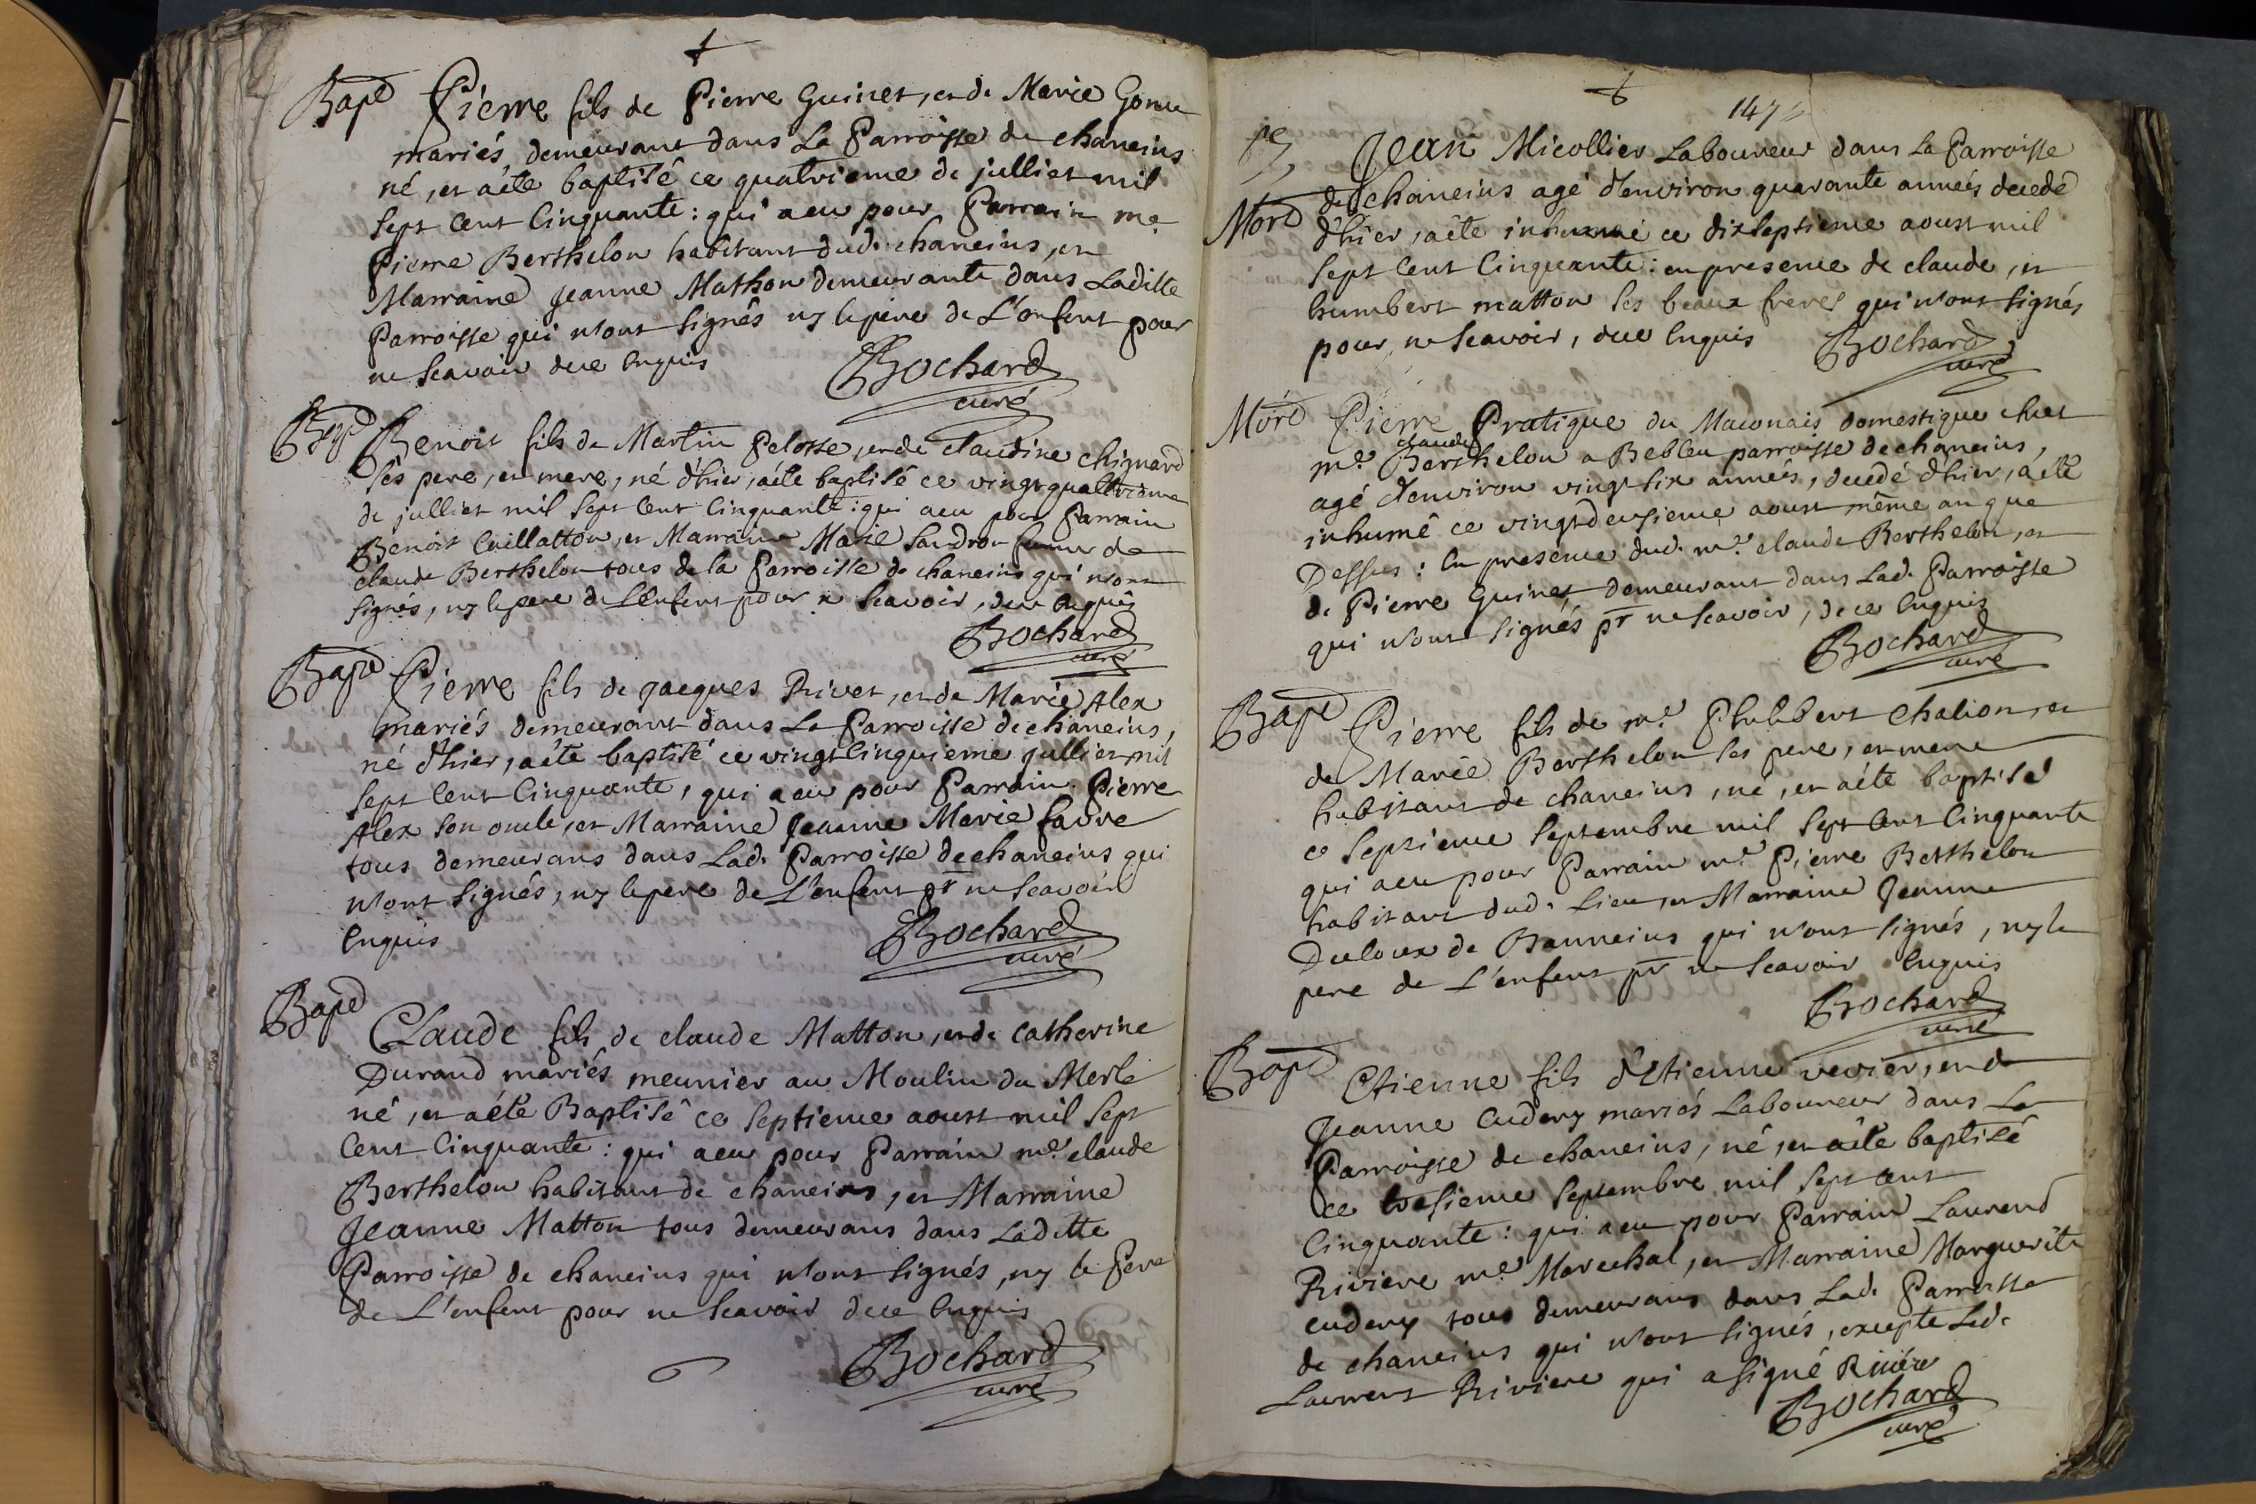 Bapt
Pierre fils de Pierre Guinet, et de Marie
mariés, demeurant dans La Parroisse de chaneins
né, et aéte baptisé ce quatrieme de julliet mil
sept Cent Cinquante : qui aeu pour Parrain me.
Pierre Berthelon habitant dud. chaneins, et
Marraine Jeanne Mathon demeurante dans Laditte
Parroisse qui nont signés ny le pere de L'enfent pour
ne scavoir dece Enquis
Bochard
curé
Bapt
Benoit fils de Martin Pelosse, et de claudine chignard
ses pere, et mere, né d'hier, aéte baptisé ce vingt quattrieme
de julliet mil sept Cent Cinquante : qui aeu pour Parrain
Benoit Cuillatton, et Marraine Marie Sandron femme de
claude Berthelon tous de la Parroisse de chaneins qui nont
signés, ny le pere de L'Enfent pour ne scavoir, dece Enquis
Bochard
curé
Bapt
Pierre fils de jacques Rivet, et de Marie Alex
mariés demeurant dans La Parroisse de chaneins,
né d'hier, aéte baptisé ce vingt Cinquieme julliet mil
sept Cent Cinquante, qui aeu pour Parrain Pierre
Alex son oncle, et Marraine Jeanne Marie favre
tous demeurans dans Lad. Parroisse de chaneins qui
nont signés, ny le pere de L'enfent pr ne scavoir
Enquis
Bochard
curé
Bapt
Claude fils de claude Matton, et de Catherine
Durand mariés meunier au Moulin du Merle
né, et aéte Baptisé ce septieme aoust mil sept
Cent Cinquante : qui aeu pour Parrain me. claude
Berthelon habitant de chaneins, et Marraine
Jeanne Matton tous demeurans dans Laditte
Parroisse de chaneins qui nont signés, ny le Pere
de L'enfent pour ne scavoir dece Enquis
Bochard
curé
147
Mort
Jean Micollier Laboureur dans La Parroisse
de chaneins agé d'environ quarante anneés decedé
d'hier, aéte inhumé ce dixseptieme aoust mil
sept Cent Cinquante : en presence de claude, et
humbert matton ses beaux freres qui nont signés
pour ne scavoir, dece Enquis
Bochard
curé
Mort
Pierre Pratique du Maconais domestique chez
me. claude Berthelon a Bebleu parroisse de chaneins,
agé d'environ vingt six anneés, decedé d'hier, aéte
inhumé ce vingtdeusieme aoust même an que
Dessus : En presence dud. me. claude Berthelon, et
de Pierre Guinet demeurant dans Lad. Parroisse
qui nont signés pr ne scavoir, dece Enquis
Bochard
curé
Bapt
Pierre fils de me. Philibert Chalion, et
de Marie Berthelon ses pere, et mere
habitant de chaneins, né, et aéte baptisé
ce septieme septembre mil sept Cent Cinquante
qui aeu pour Parrain me. Pierre Berthelon
habitant dud. Lieu, et Marraine Jeanne
Duloux de Banneins qui nont signés, ny le
pere de L'enfent pr ne scavoir Enquis
Bochard
curé
Bapt
Etienne fils d'Etienne vevier, et de
Jeanne Cudery mariés Laboureur dans La
Parroisse de chaneins, né, et aéte baptisé
ce tresieme septembre mil sept Cent
Cinquante : qui aeu pour Parrain Laurend
Riviere me. Marechal, et Marraine Marguerite
cudery tous demeurans dans Lad. Parroisse
de chaneins qui nont signés, excepte Led.
Laurent Riviere qui a signé Rivière
Bochard
curé